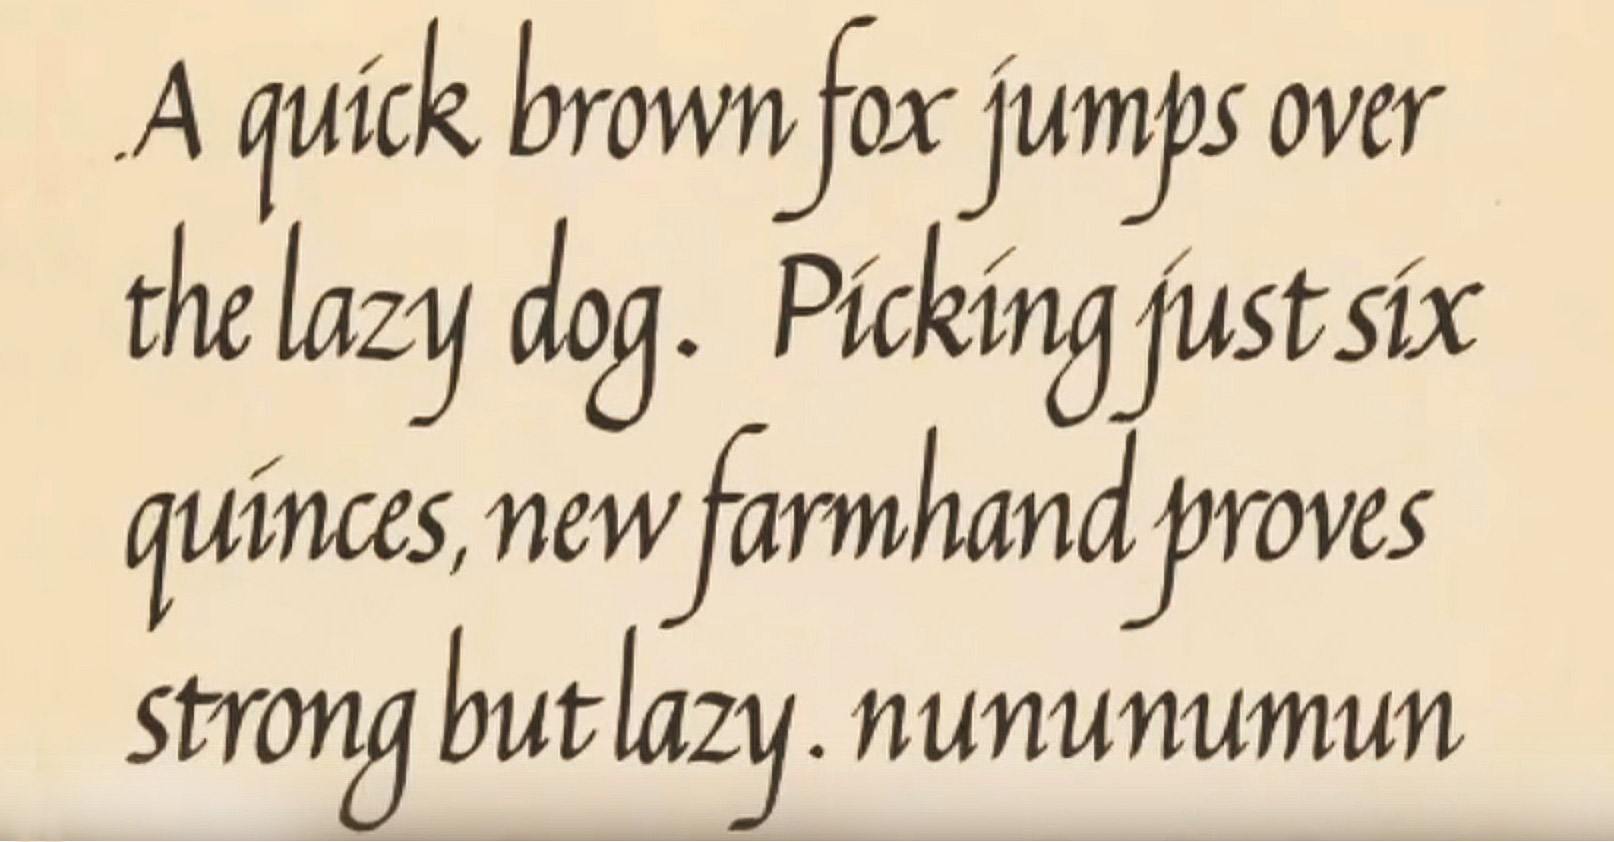 A quick brown fox jumps over
the lazy dog. Picking just six
quinces, new farmhand proves
strong but lazy. nunununumun